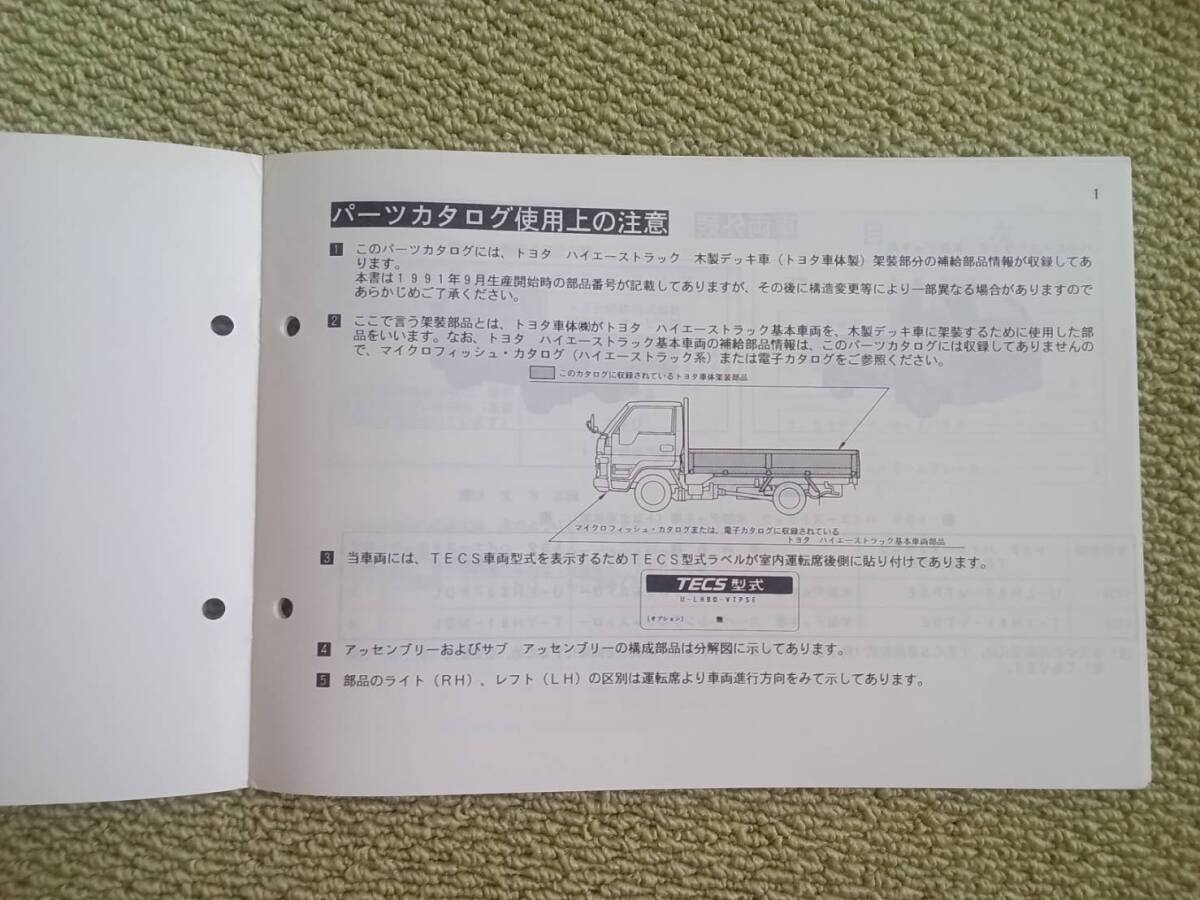 1
パーツカタログ使用上の注意
1 このパーツカタログには、トヨタ ハイエーストラック 木製デッキ車（トヨタ車体製）架装部分の補給部品情報が収録してあ
ります。
本書は１９９１年９月生産開始時の部品番号が記載してありますが、その後に構造変更等により一部異なる場合がありますので
あらかじめご了承ください。
2 ここで言う架装部品とは、トヨタ車体㈱がトヨタ ハイエーストラック基本車両を、木製デッキ車に架装するために使用した部
品をいいます。なお、トヨタ ハイエーストラック基本車両の補給部品情報は、このパーツカタログには収録してありませんの
で、マイクロフィッシュ・カタログ（ハイエーストラック系）または電子カタログをご参照ください。
このカタログに収録されているトヨタ車体架装部品
マイクロフィッシュ・カタログまたは、電子カタログに収録されている
トヨタ ハイエーストラック基本車両部品
3 当車両には、ＴＥＣＳ車両型式を表示するためＴＥＣＳ型式ラベルが室内運転席後側に貼り付けてあります。
TECS型式
U-LH80-VTPSE
[オプション] 無
4 アッセンブリーおよびサブ アッセンブリーの構成部品は分解図に示してあります。
5 部品のライト（ＲＨ）、レフト（ＬＨ）の区別は運転席より車両進行方向をみて示してあります。